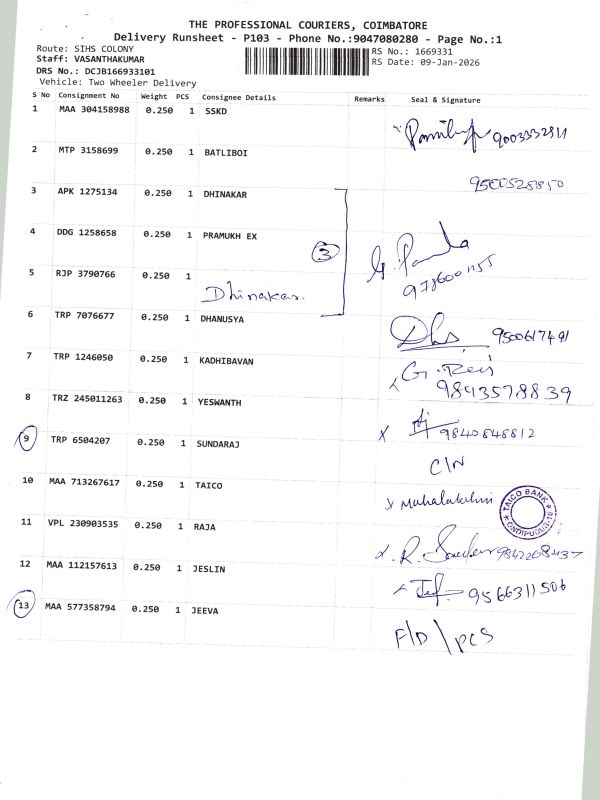 THE PROFESSIONAL COURIERS, COIMBATORE
Delivery Runsheet - P103 - Phone No.:9047080280 - Page No.:1
Route: SIHS COLONY
RS No.: 1669331
Staff: VASANTHAKUMAR
RS Date: 09-Jan-2026
DRS No.: DCJB166933101
Vehicle: Two Wheeler Delivery
S No Consignment No Weight PCS Consignee Details Remarks Seal & Signature
1 MAA 304158988 0.250 1 SSKD
9003332811
2 MTP 3158699 0.250 1 BATLIBOI
9500525850
3 APK 1275134 0.250 1 DHINAKAR
4 DDG 1258658 0.250 1 PRAMUKH EX
3
5 RJP 3790766 0.250 1
Dhinakar.
6 TRP 7076677 0.250 1 DHANUSYA
Dhs 9500617491
7 TRP 1246050 0.250 1 KADHIBAVAN
9843578839
8 TRZ 245011263 0.250 1 YESWANTH
9840848812
9 TRP 6504207 0.250 1 SUNDARAJ
C/N
10 MAA 713267617 0.250 1 TAICO
x Mahalakshmi
TAICO BANK
ONDIPUDUR-16
11 VPL 230903535 0.250 1 RAJA
9842268437
12 MAA 112157613 0.250 1 JESLIN
9566311506
13 MAA 577358794 0.250 1 JEEVA
F/D \ PCS